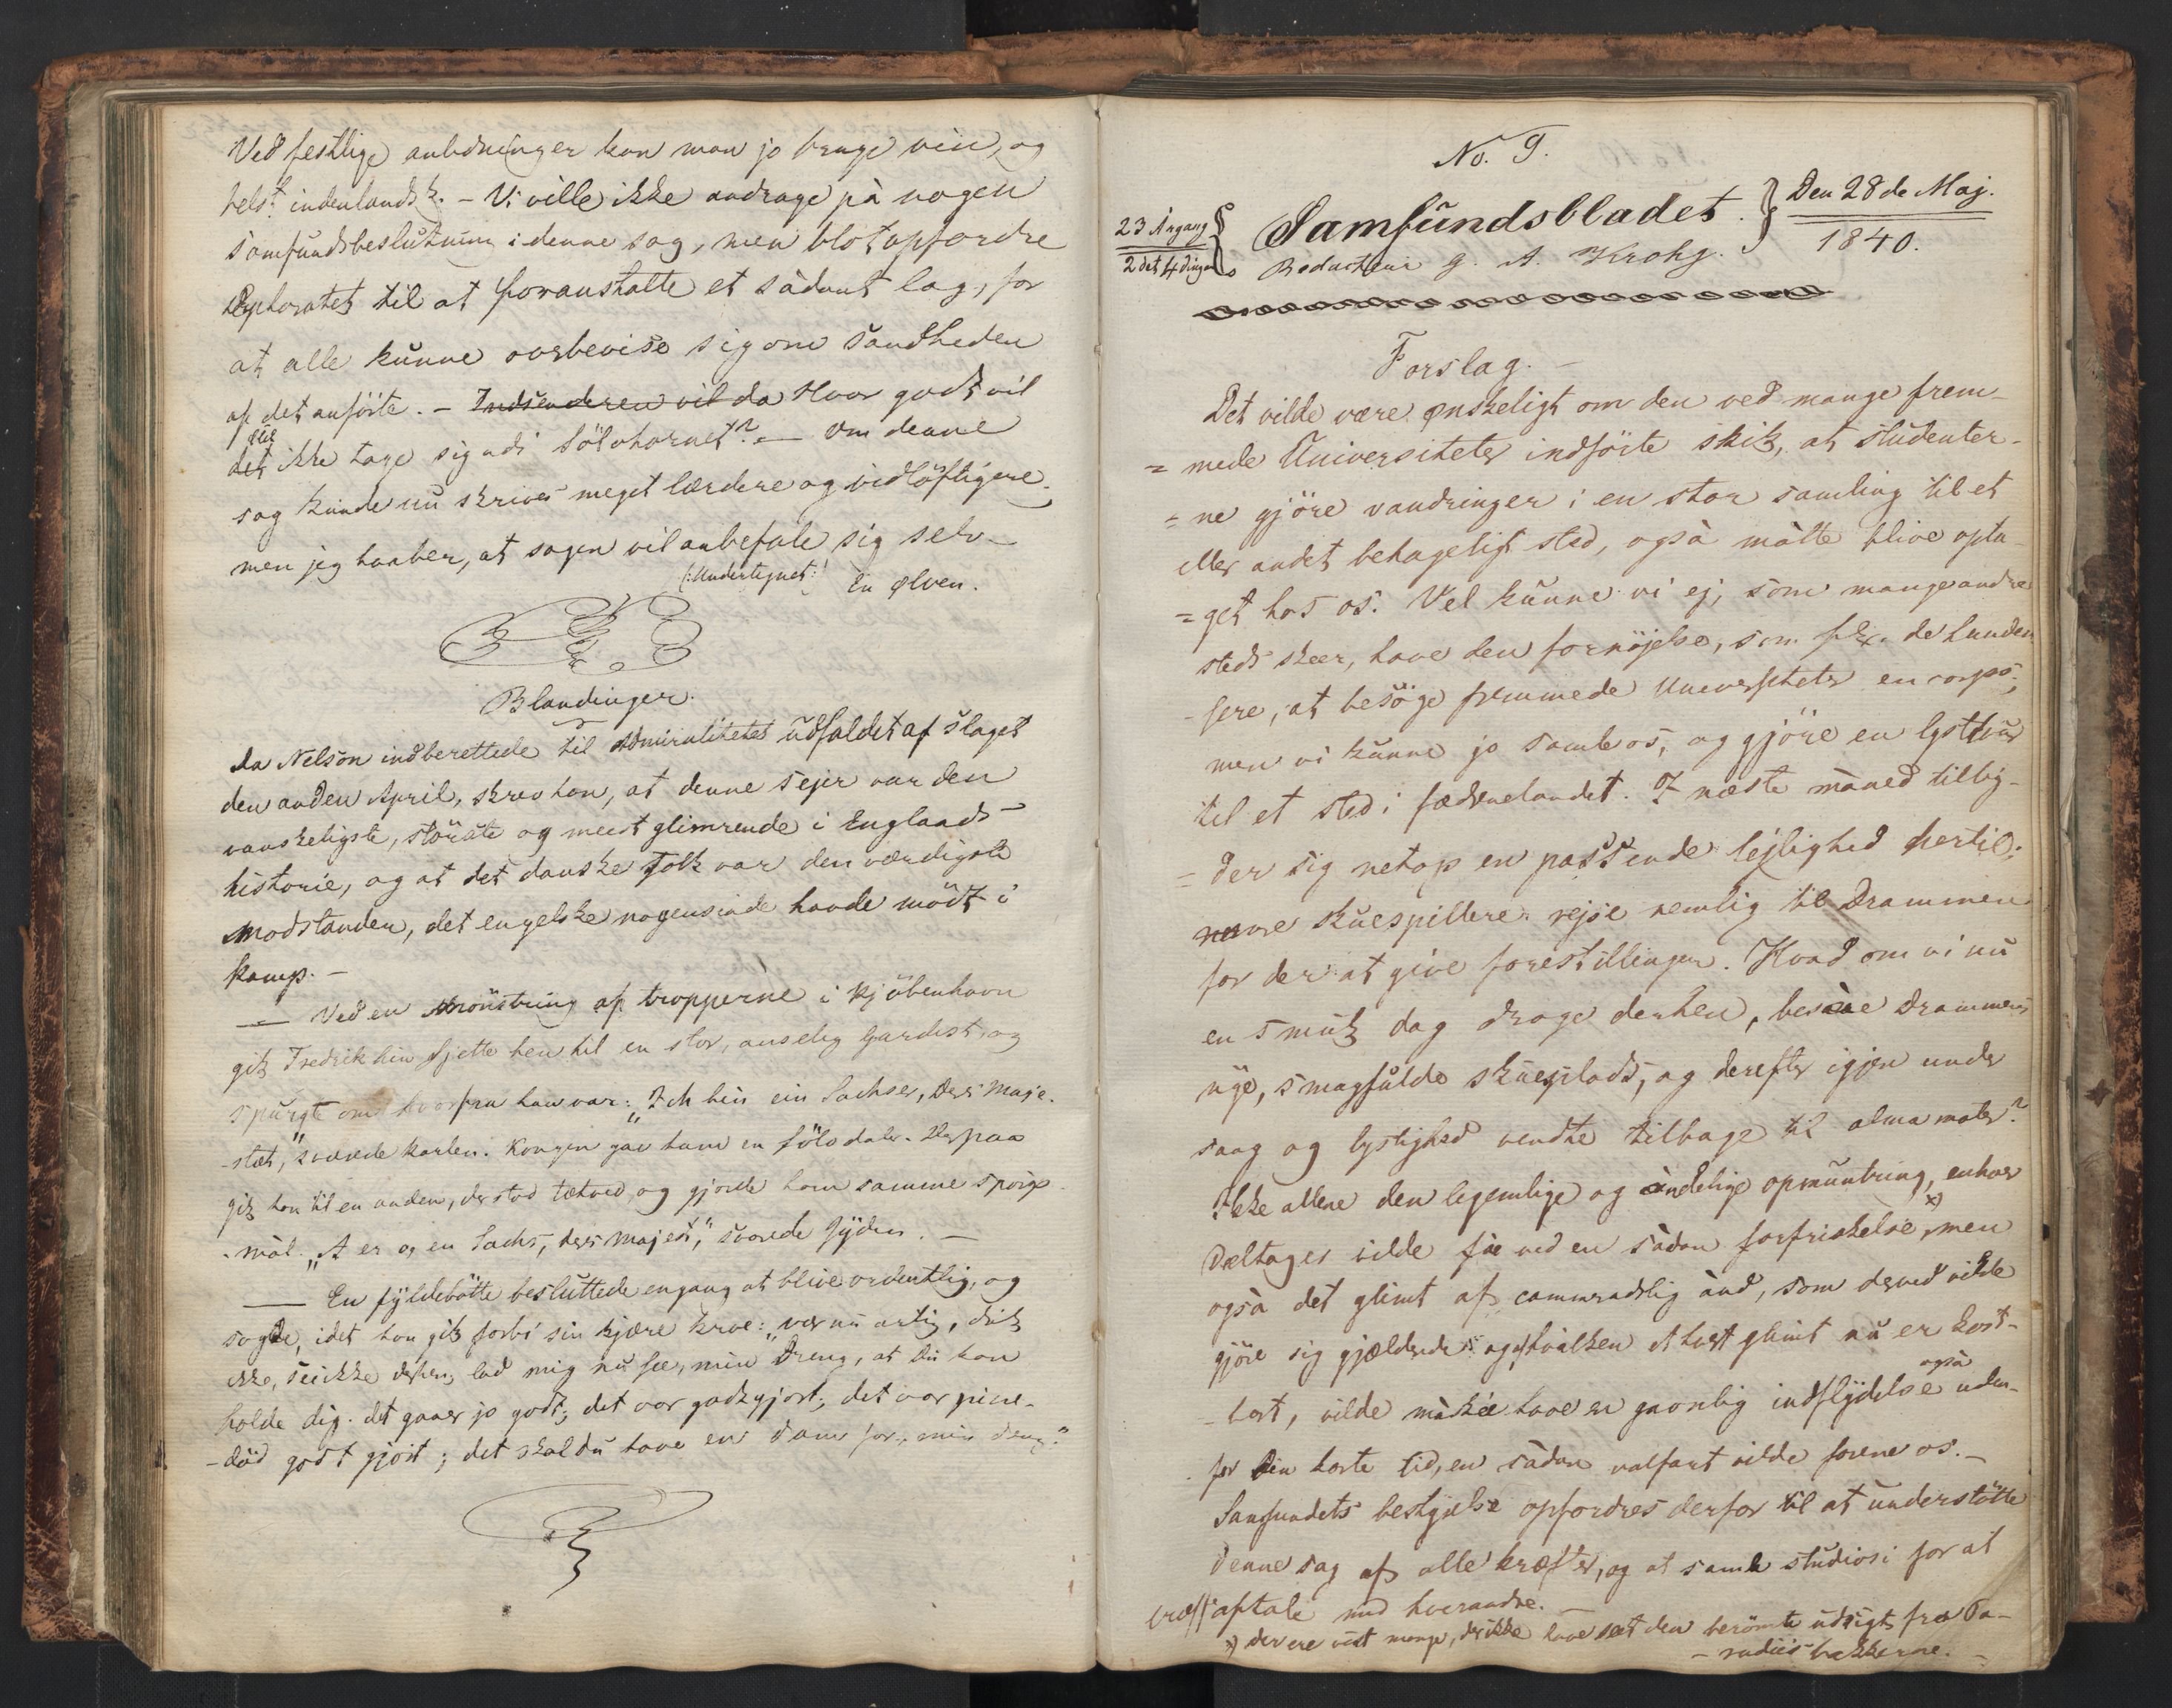 Ved festlige anledninger kan man jo bruge viin, og
helst indenlandsk. - Vi ville ikke andrage på nogen
samfundsbeslutning i denne sag, men blot opfordre
til at foranstalte et sådant lag, for
at alle kunne overbevise sig om sandheden
af det anførte. - Indsenderen vil da Hvor godt vil
det öllet ikke tage sig ud i Sölvhornet? - Om denne
sag kunde nu skrives meget lærdere og vidlöftigere,
men jeg haaber, at sagen vil anbefale sig selv -
(:Undertegnet:) En ølven.
Blandinger.
Da Nelson indberettede til Admiralitetet udfaldet af slaget
den anden April, skrev han, at denne sejer var den
vanskeligste, störste og meest glimrende i Englands
historie, og at det danske folk var den værdigste
modstander, det engelske nogensinde havde mödt i
kamp. -
— Ved en mönstring af tropperne i Kjöbenhavn
gik Fredrik hin sjette hen til en stor, anselig Gardist, og
spurgte om hvorfra han var: "Ich bin ein Sachser, Ders Maje-
-stæt," svarede karlen. Kongen gav ham en sölvdaler. Derpaa
gik han til en anden, der stod tætved, og gjorde ham samme spörgs-
-mål. "A er og en Sachs, ders Majest," svarede Jyden. -
— En fyldebötte besluttede engang at blive ordentlig, og
sagde, idet han gik forbi sin kjære kroe: "vær nu artig, drik
ikke, see ikke derhen, lad mig nu see, min Dreng, at Du kan
holde dig. det gaaer jo godt; det var godt gjort; det var pine-
-död godt gjort; det skal du have en dram for, min dreng."
No. 9.
23 Årgang
2det 4dingaar
Samfundsbladet.
Redacteur G. A. Krohg.
Den 28de Maj.
1840.
Forslag. -
Det vilde være ønskeligt om den ved mange frem-
= mede Universiteter indförte skik, at studenter-
= ne gjöre vandringer i en stor samling til et
eller andet behageligt sted, også måtte blive opta-
= get hos os. Vel kunne vi ej, som mange andre
steds skeer, have den fornöjelse, som f. Ex. de Lunden-
- sere, at besöge fremmede Universiteter en corps;
men vi kunne jo samle os, og gjöre en lysttour
til et sted i fædrenelandet. I næste måned tilby-
= der sig netop en passende lejlighed hertil;
vore skuespillere rejse nemlig til Drammen
for der at give forestillinger. Hvad om vi nu
en smuk dag droge derhen, besåe Drammens
nye, smagfulde skueplads, og derefter igjen under
sang og lystighed vendte tilbage til alma mater?
Ikke allene den legemlige og åndelige opmuntring, enhver
Deltager vilde fåe ved en sådan forfriskelse x), men
også det glimt af cammeradslig ånd, som derved vilde
gjöre sig gjældende og af hvilken et hvert glimt nu er kost-
- bart, vilde måskee have en gavnlig indflydelse også uden-
for den korte tid, en sådan valfart vilde forene os. -
Samfundets bestyrelse opfordres derfor til at understötte
denne sag af alle kræfter, og at samle studiosi for at
træffe aftale med hverandre. -
x) der ere vist mange, der ikke have seet den berömte udsigt fra Pa-
- radiisbakkerne. -